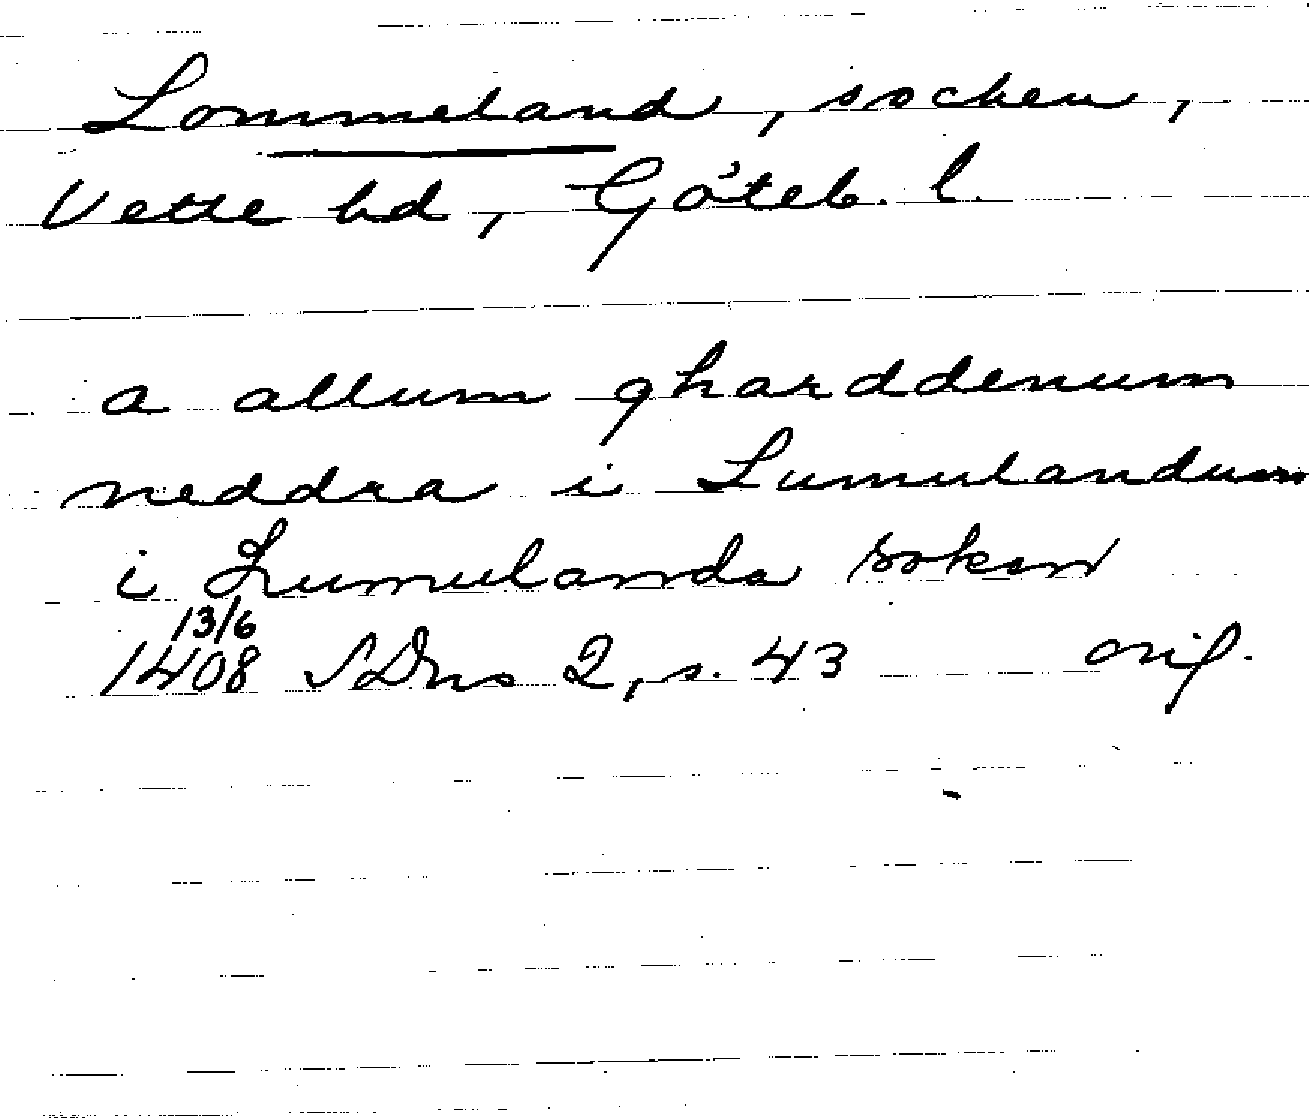 Lommeland, socken,
Vette hd, Göteb. l.
a allum gharddenum
neddra i Lumulandum
i Lumulanda sokan
13/6
1408 SDns 2, s. 43 orig.